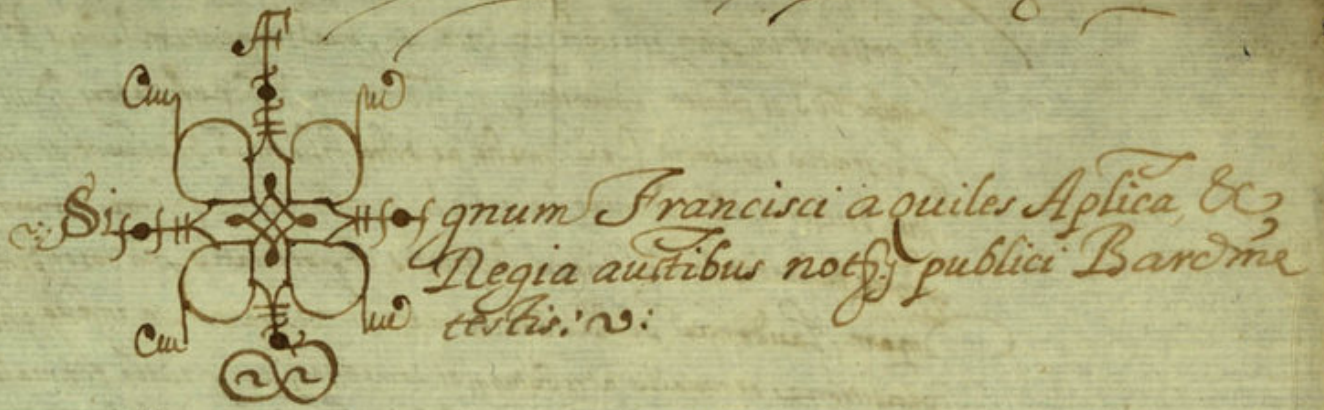 Signum Francisci aquiles Aplica, &
Regia auctibus not publici Barcmē
testis.